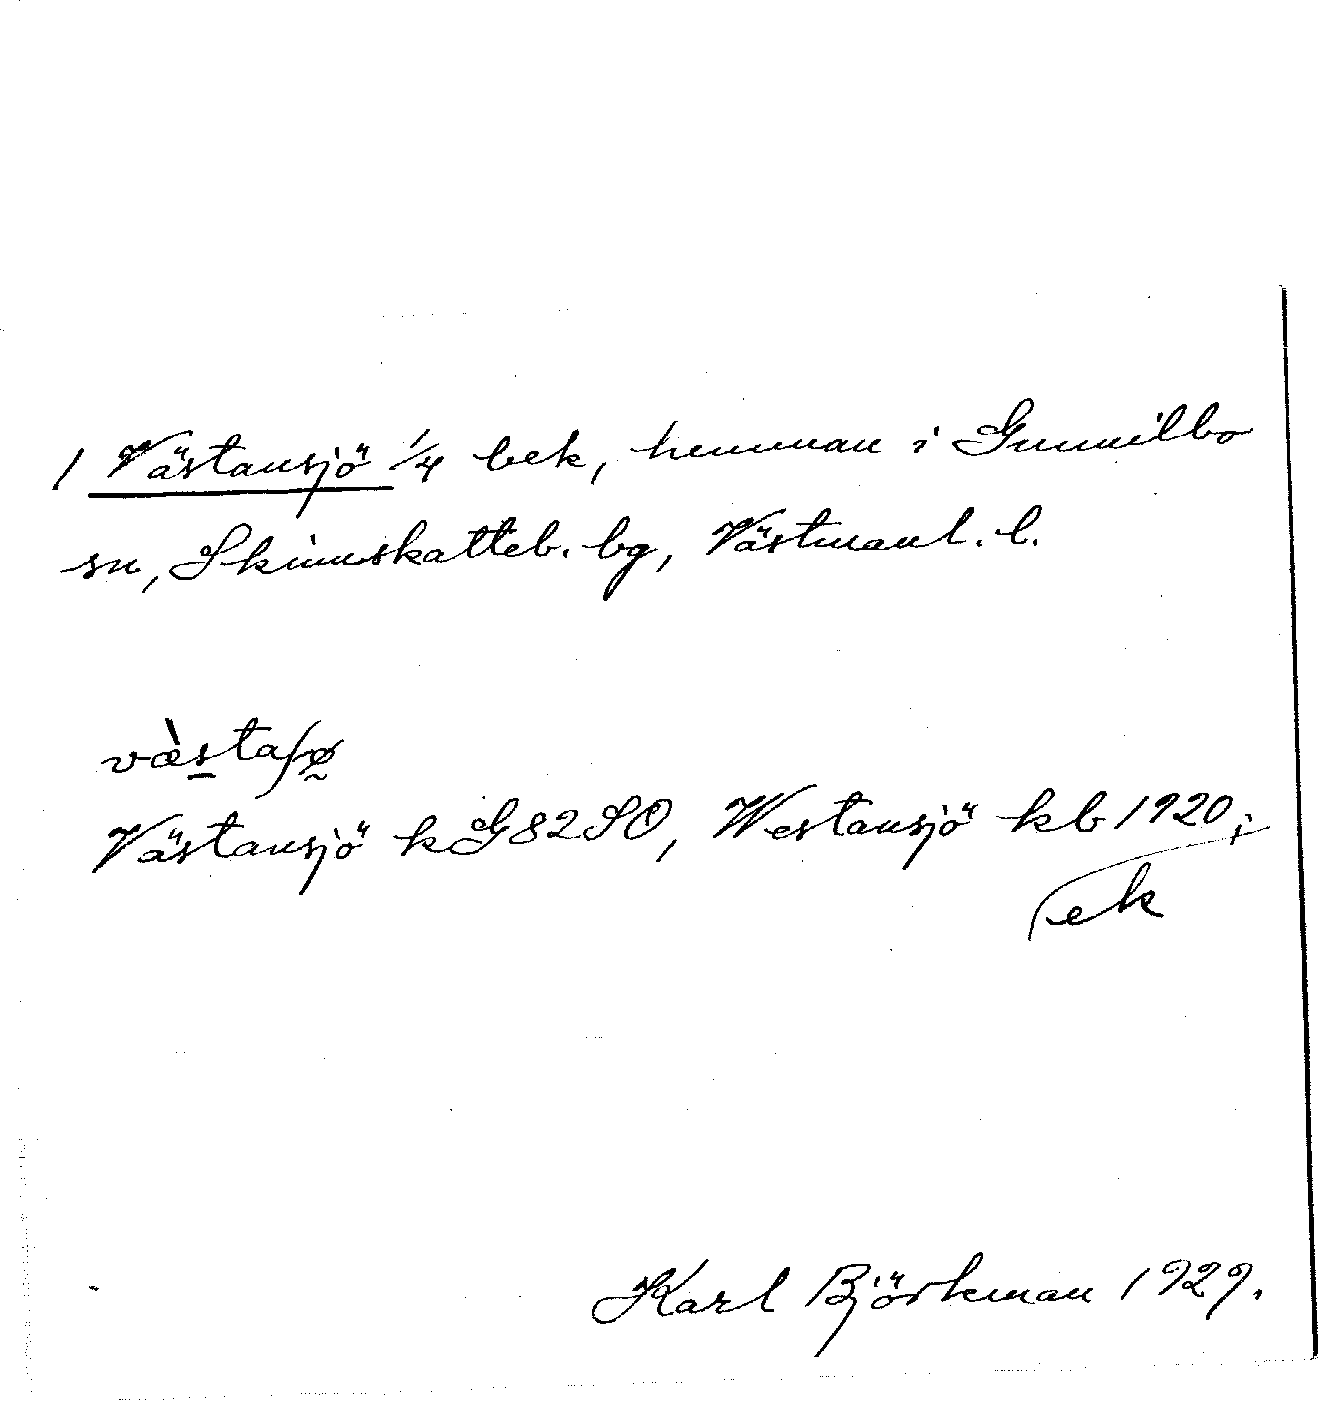 1 Västansjö 1/4 bek, hemman i Gunnilbo
sn, Skinnskatteb. bg, Västmanl. l.
væ̀staʃø
Västansjö kG82SO, Westansjö kb 1920;
ek
Karl Björkman 1929.